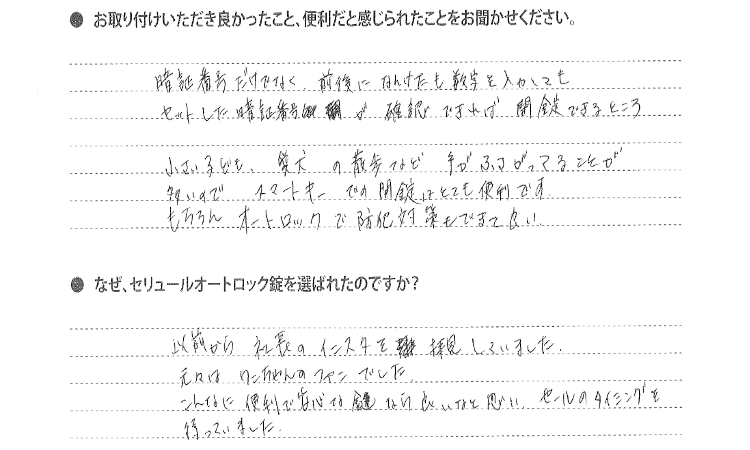 ● お取り付けいただき良かったこと、便利だと感じられたことをお聞かせください。
暗証番号だけでなく、前後になんけたも数字を入力しても
セットした暗証番号が確認できれば開錠できるところ
小さい子ども、愛犬の散歩などで手がふさがってることが
多いのでスマートキーでの開錠はとても便利です
もちろんオートロックで防犯対策もできて良い。
● なぜ、セリュールオートロック錠を選ばれたのですか？
以前から社長のインスタを拝見していました。
元々はワンちゃんのファンでした。
こんなに便利で安心な鍵なら良いなと思い、セールのタイミングを
待っていました。